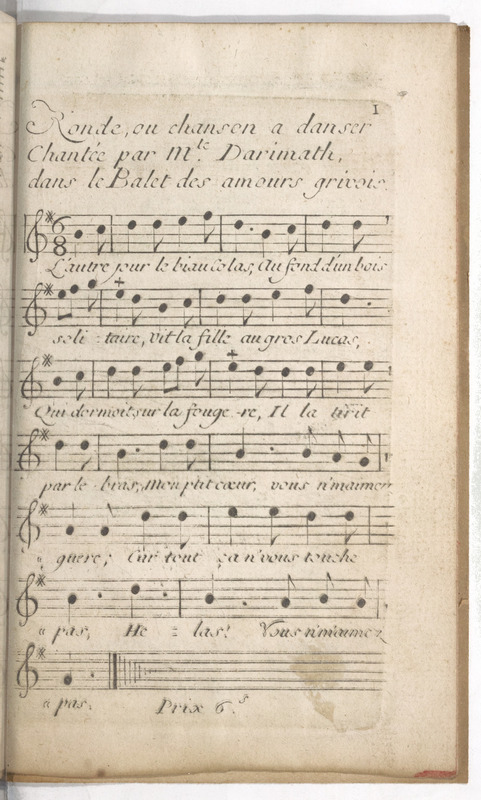 1
Ronde, ou chanson a danser
Chantée par Mlle. Darimath,
dans le Balet des amours grivois.
L'autre jour le biau Colas, Au fond d'un bois
soli - taire, vit la fille au gros Lucas,
Qui dormoit sur la fouge - re, Il la tirit
par le bras; Mon p'tit cœur, vous n'm'aimez
guere; Car tout ça n'vous touche
pas, He = las! Vous n'm'aimez
pas. Prix 6.s